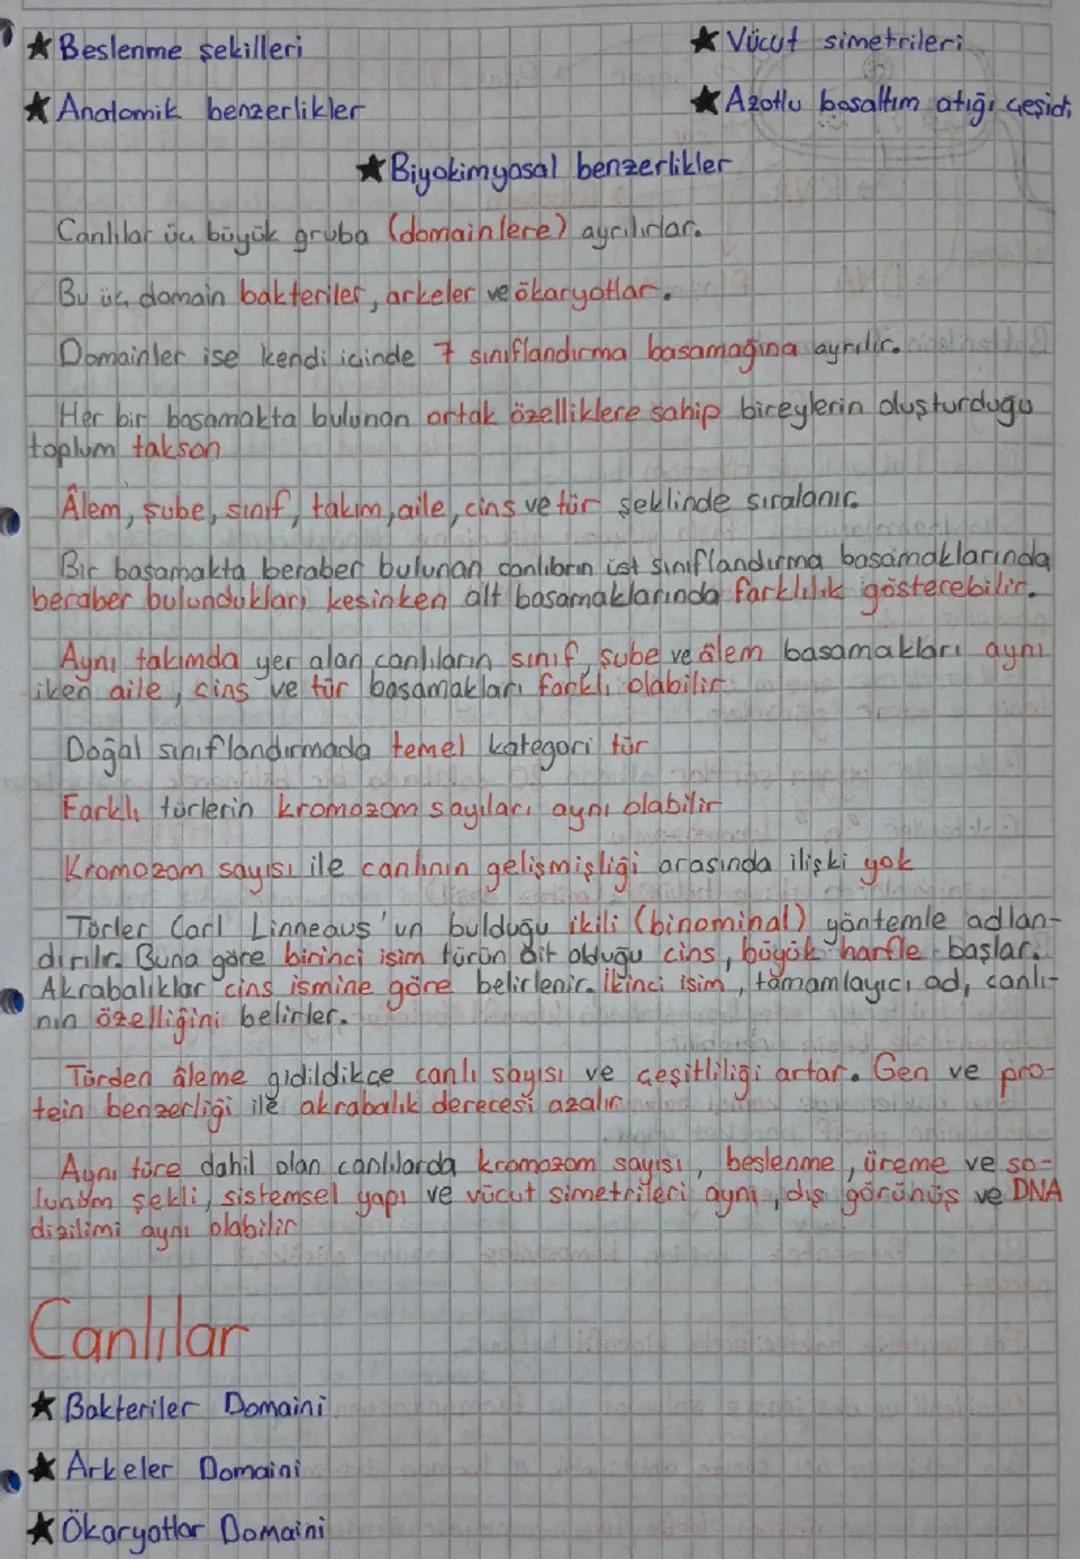 ★ Beslenme şekilleri
★ Vücut simetrileri
★ Anatomik benzerlikler
★ Azotlu boşaltım atığı çeşidi
★ Biyokimyasal benzerlikler
Canlılar üç büyük gruba (domainlere) ayrılırlar.
Bu üç domain bakteriler, arkeler ve ökaryotlar.
Domainler ise kendi içinde 7 sınıflandırma basamağına ayrılır.
Her bir basamakta bulunan ortak özelliklere sahip bireylerin oluşturduğu
toplum takson
Âlem, şube, sınıf, takım, aile, cins ve tür şeklinde sıralanır.
Bir basamakta beraber bulunan canlıların üst sınıflandırma basamaklarında
beraber bulundukları kesinken alt basamaklarında farklılık gösterebilir.
Aynı takımda yer alan canlıların sınıf, şube ve âlem basamakları aynı
iken aile, cins ve tür basamakları farklı olabilir
Doğal sınıflandırmada temel kategori tür
Farklı türlerin kromozom sayıları aynı olabilir
Kromozom sayısı ile canlının gelişmişliği arasında ilişki yok
Türler Carl Linneaus'un bulduğu ikili (binominal) yöntemle adlan-
dırılır. Buna göre birinci isim türün ait olduğu cins, büyük harfle başlar.
Akrabalıklar cins ismine göre belirlenir. İkinci isim, tamamlayıcı ad, canlı-
nın özelliğini belirler.
Türden âleme gidildikçe canlı sayısı ve çeşitliliği artar. Gen ve pro-
tein benzerliği ile akrabalık derecesi azalır
Aynı türe dahil olan canlılarda kromozom sayısı, beslenme, üreme ve so-
lunum şekli, sistemsel yapı ve vücut simetrileri aynı, dış görünüş ve DNA
dizilimi aynı olabilir
Canlılar
★ Bakteriler Domaini
★ Arkeler Domaini
★ Ökaryotlar Domaini